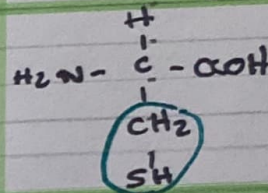 H
H₂N - C - COOH
CH₂
SH